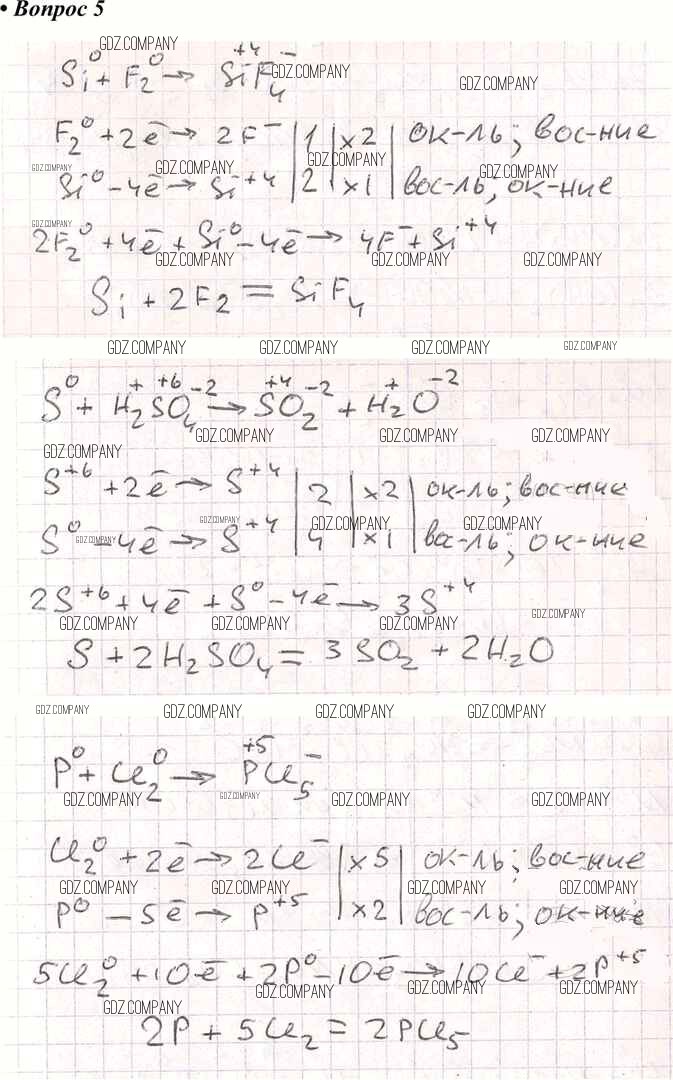 • Вопрос 5
GDZ.COMPANY
Si⁰ + F₂⁰ → Si⁺⁴F₄⁻
GDZ.COMPANY GDZ.COMPANY
F₂⁰ + 2ē → 2F⁻ | 1 | x2 | ок-ль; вос-ние
GDZ.COMPANY GDZ.COMPANY GDZ.COMPANY GDZ.COMPANY
Si⁰ - 4ē → Si⁺⁴ | 2 | x1 | вос-ль, ок-ние
GDZ.COMPANY
2F₂⁰ + 4ē + Si⁰ - 4ē → 4F⁻ + Si⁺⁴
GDZ.COMPANY GDZ.COMPANY GDZ.COMPANY
Si + 2F₂ = SiF₄
GDZ.COMPANY GDZ.COMPANY GDZ.COMPANY GDZ.COMPANY
S⁰ + H₂⁺S⁺⁶O₄⁻² → S⁺⁴O₂⁻² + H₂⁺O⁻²
GDZ.COMPANY GDZ.COMPANY GDZ.COMPANY
GDZ.COMPANY
S⁺⁶ + 2ē → S⁺⁴ | 2 | x2 | ок-ль; вос-ние
GDZ.COMPANY GDZ.COMPANY GDZ.COMPANY
S⁰ - 4ē → S⁺⁴ | 4 | x1 | вос-ль; ок-ние
GDZ.COMPANY
2S⁺⁶ + 4ē + S⁰ - 4ē → 3S⁺⁴
GDZ.COMPANY
GDZ.COMPANY GDZ.COMPANY GDZ.COMPANY
S + 2H₂SO₄ = 3SO₂ + 2H₂O
GDZ.COMPANY GDZ.COMPANY GDZ.COMPANY GDZ.COMPANY
P⁰ + Cl₂⁰ → P⁺⁵Cl₅⁻
GDZ.COMPANY GDZ.COMPANY GDZ.COMPANY GDZ.COMPANY
Cl₂⁰ + 2ē → 2Cl⁻ | x5 | ок-ль; вос-ние
GDZ.COMPANY GDZ.COMPANY GDZ.COMPANY GDZ.COMPANY
P⁰ - 5ē → P⁺⁵ | x2 | вос-ль; ок-ние
5Cl₂⁰ + 10ē + 2P⁰ - 10ē → 10Cl⁻ + 2P⁺⁵
GDZ.COMPANY GDZ.COMPANY GDZ.COMPANY
GDZ.COMPANY
2P + 5Cl₂ = 2PCl₅